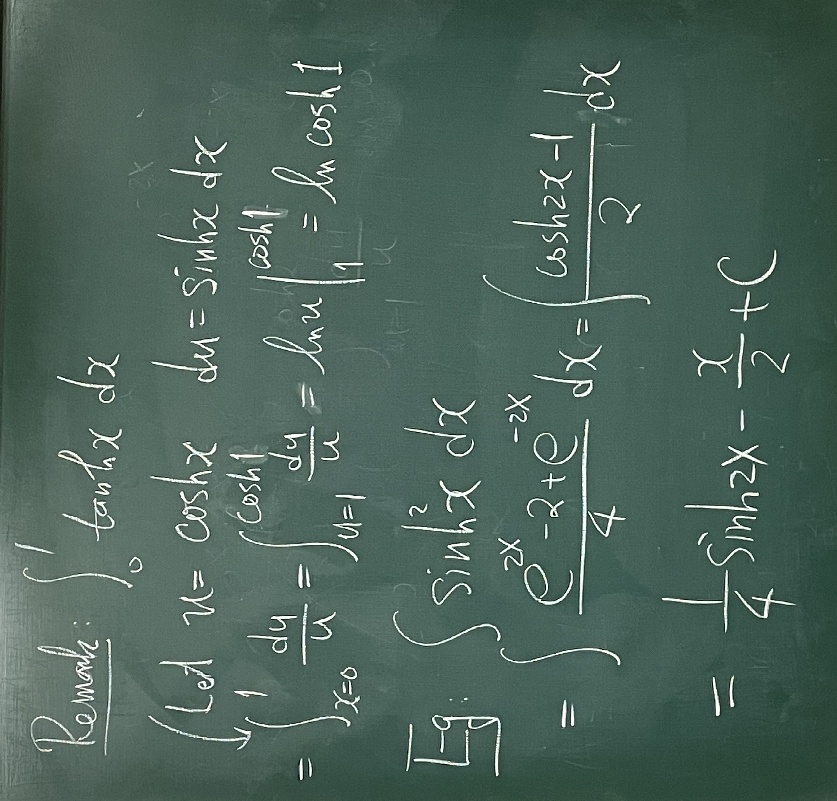 Remark: ∫₀¹ tanhx dx
Let u = coshx du = sinhx dx
= ∫_{x=0}^{1} du/u = ∫_{u=1}^{cosh1} du/u = ln u |_{1}^{cosh1} = ln cosh 1
Eg: ∫ sinh²x dx
= ∫ (e^{2x} - 2 + e^{-2x})/4 dx = ∫ (cosh2x - 1)/2 dx
= 1/4 sinh2x - x/2 + C